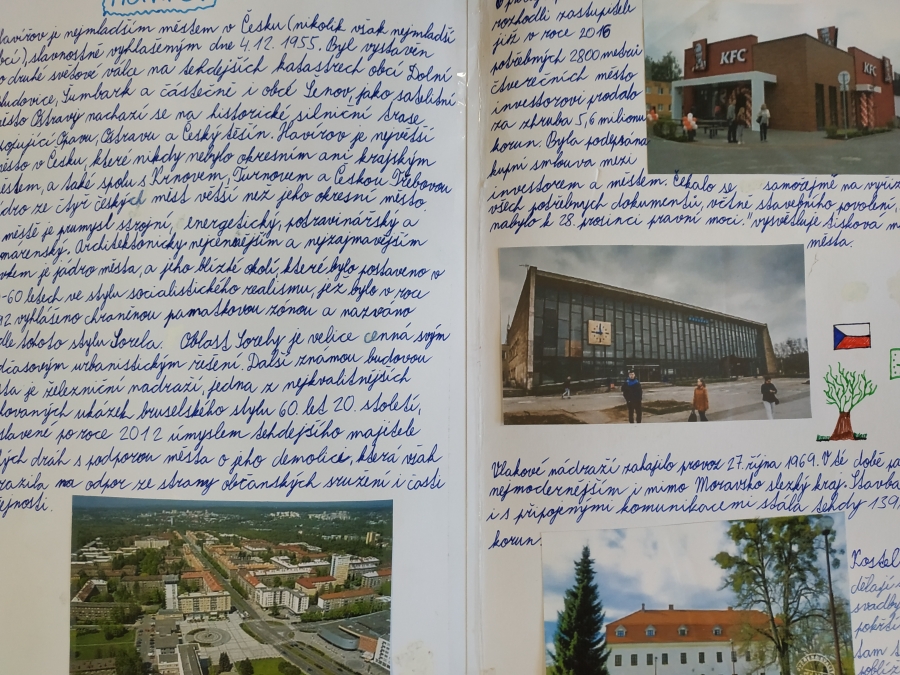 Havířov
Havířov je nejmladším městem v Česku (nikolik však nejmladší
obcí), slavnostně vyhlášeným dne 4.12. 1955. Byl vystavěn
po druhé světové válce na tehdejších katastrech obcí Dolní
Bludovice, Šumbark a částečně i obce Šenov, jako satelitní
město Ostravy nachází se na historické silniční trase
spojující Opavu, Ostravu a Český Těšín. Havířov je největší
město v Česku, které nikdy nebylo okresním ani krajským
městem, a také spolu s Krnovem, Turnovem a Českou Třebovou
jedno ze čtyř českých měst větší než jeho okresní město
městě je průmysl strojní, energetický, potravinářský a
Architektonicky nejcennějším a nejzajímavějším
je jádro města, a jeho blízké okolí, které bylo postaveno v
-60 letech ve stylu socialistického realismu, jež bylo v roce
92 vyhlášeno chráněnou památkovou zónou a nazváno
dle tohoto stylu Sorela. Oblast Sorely je velice cenná svým
urbanistickým řešení. Další známou budovou
je železniční nádraží, jedna z nejkvalitnějších
ukázek bruselského stylu 60. let 20. století,
po roce 2012 úmyslem tehdejšího majitele
drah s podporou města o jeho demolice, která však
narazila na odpor ze strany občanských sružení i části
rozhodli zastupitelé
již v roce 2016
potřebných 2800 metrů
čtverečních město
investorovi prodalo
za zhruba 5,6 milionu
korun. Byla podepsána
kupní smlouva mezi
investorem a městem. Čekalo se samořejmě na
všech potřebných dokumentů, včetně stavebního povolení,
nabylo k 28. prosinci právní moci." vysvětluje tisková
města.
KFC
KFC
Vlakové nádraží zahájilo provoz 27. října 1969. V té době
nejmodernějším i mimo Moravsko slezký kraj. Stavba
i s připojenými komunikacemi stála tehdy 139
korun.
Kostel
dělají
svadby
sam